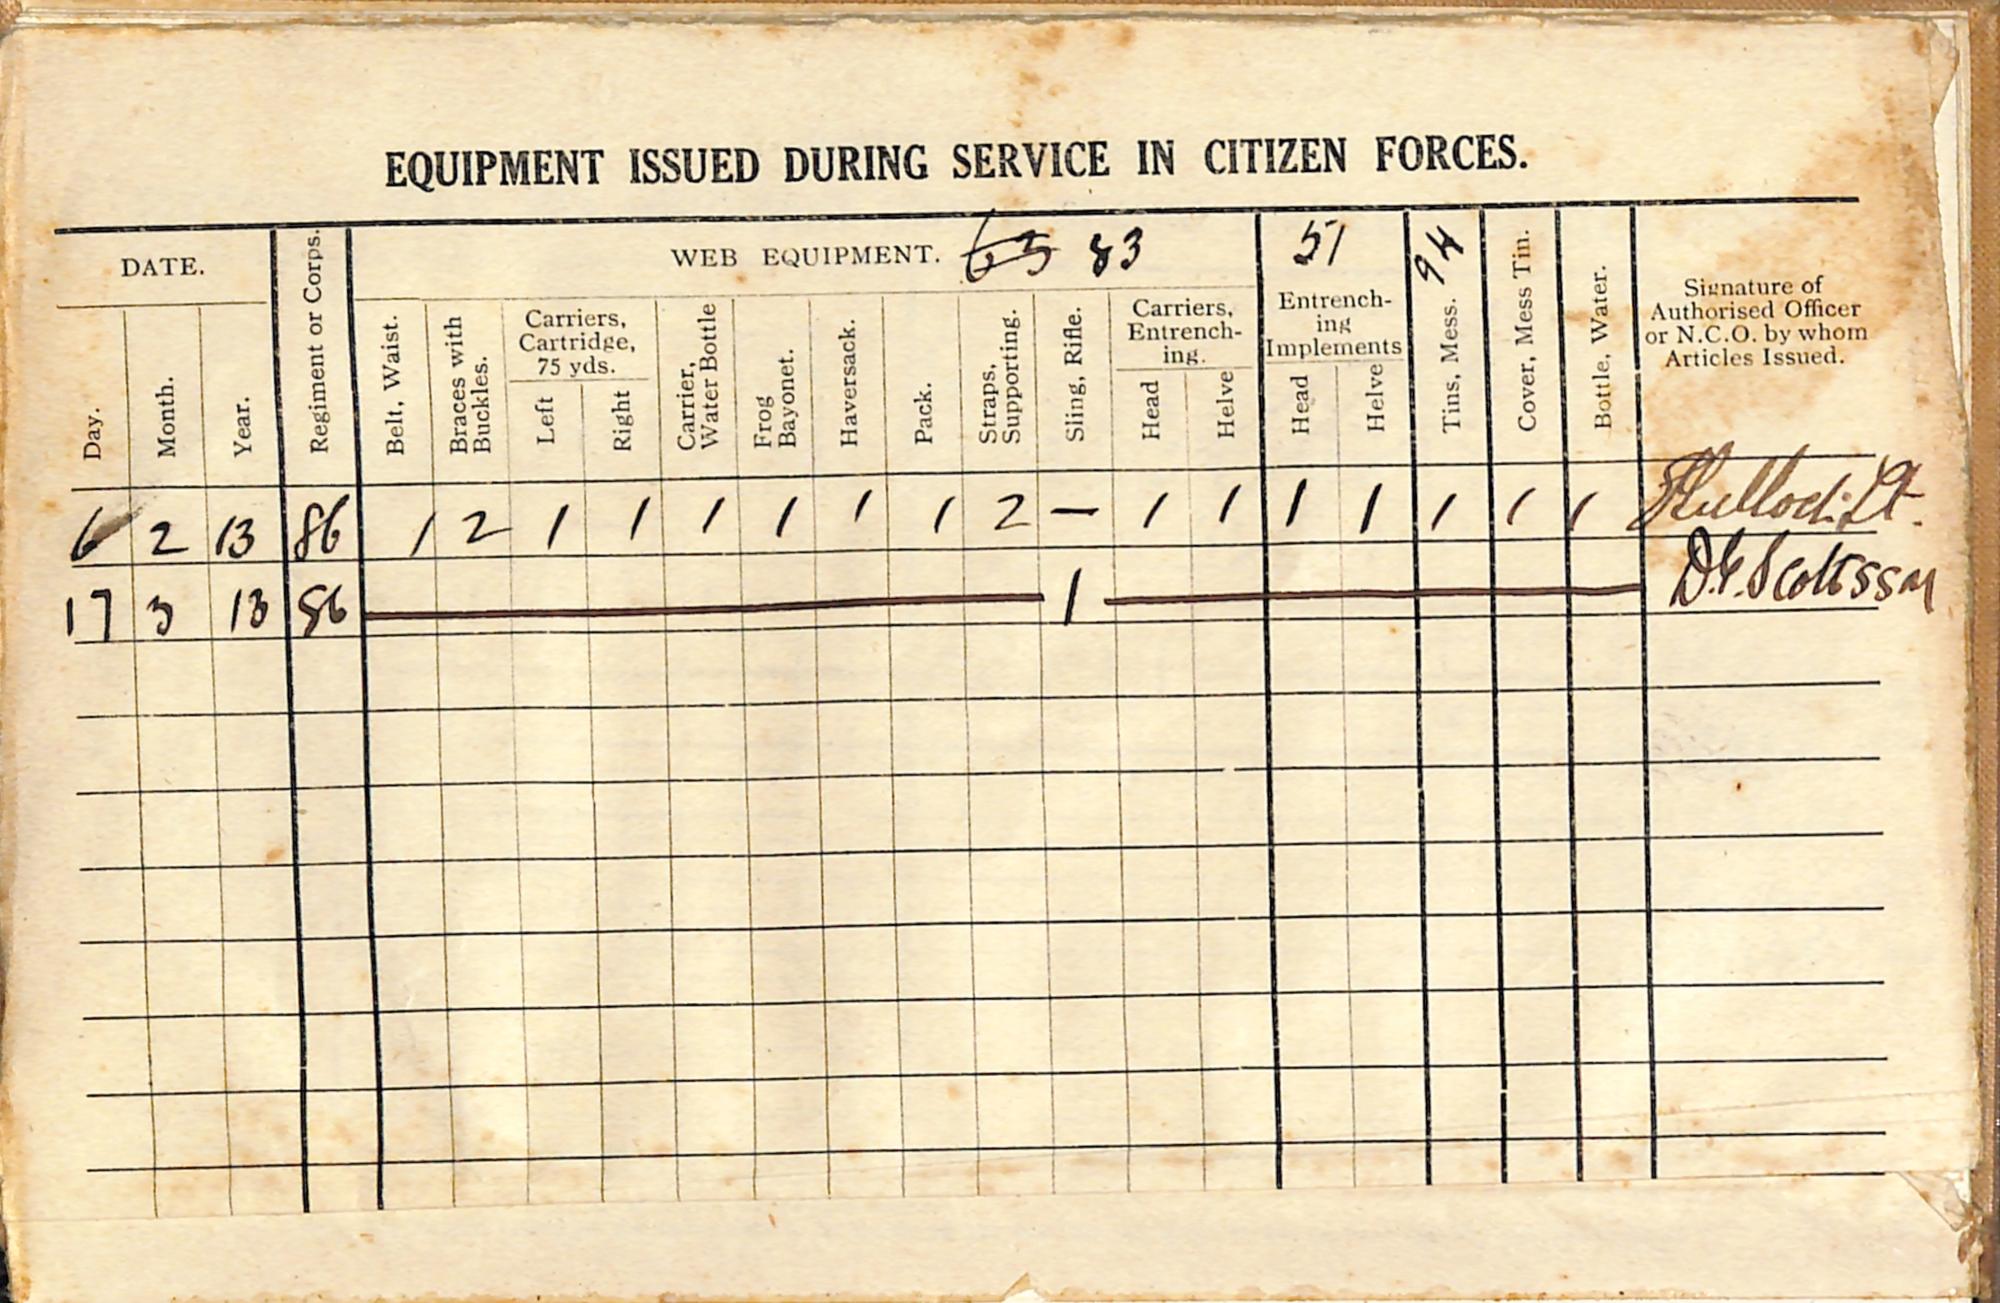 EQUIPMENT ISSUED DURING SERVICE IN CITIZEN FORCES.
DATE.
Day.
Month.
Year.
Regiment or Corps.
WEB EQUIPMENT. 65 83
Belt, Waist.
Braces with
Buckles.
Carriers,
Cartridge,
75 yds.
Left
Right
Carrier,
Water Bottle
Frog
Bayonet.
Haversack.
Pack.
Straps,
Supporting.
Sling, Rifle.
Carriers,
Entrench-
ing.
Head
Helve
51
Entrench-
ing
Implements
Head
Helve
94
Tins, Mess.
Cover, Mess Tin.
Bottle, Water.
Signature of
Authorised Officer
or N.C.O. by whom
Articles Issued.
6 2 13 86 1 2 1 1 1 1 1 1 2 — 1 1 1 1 1 1 1 Lt.
17 3 13 86 1 Scott SSM